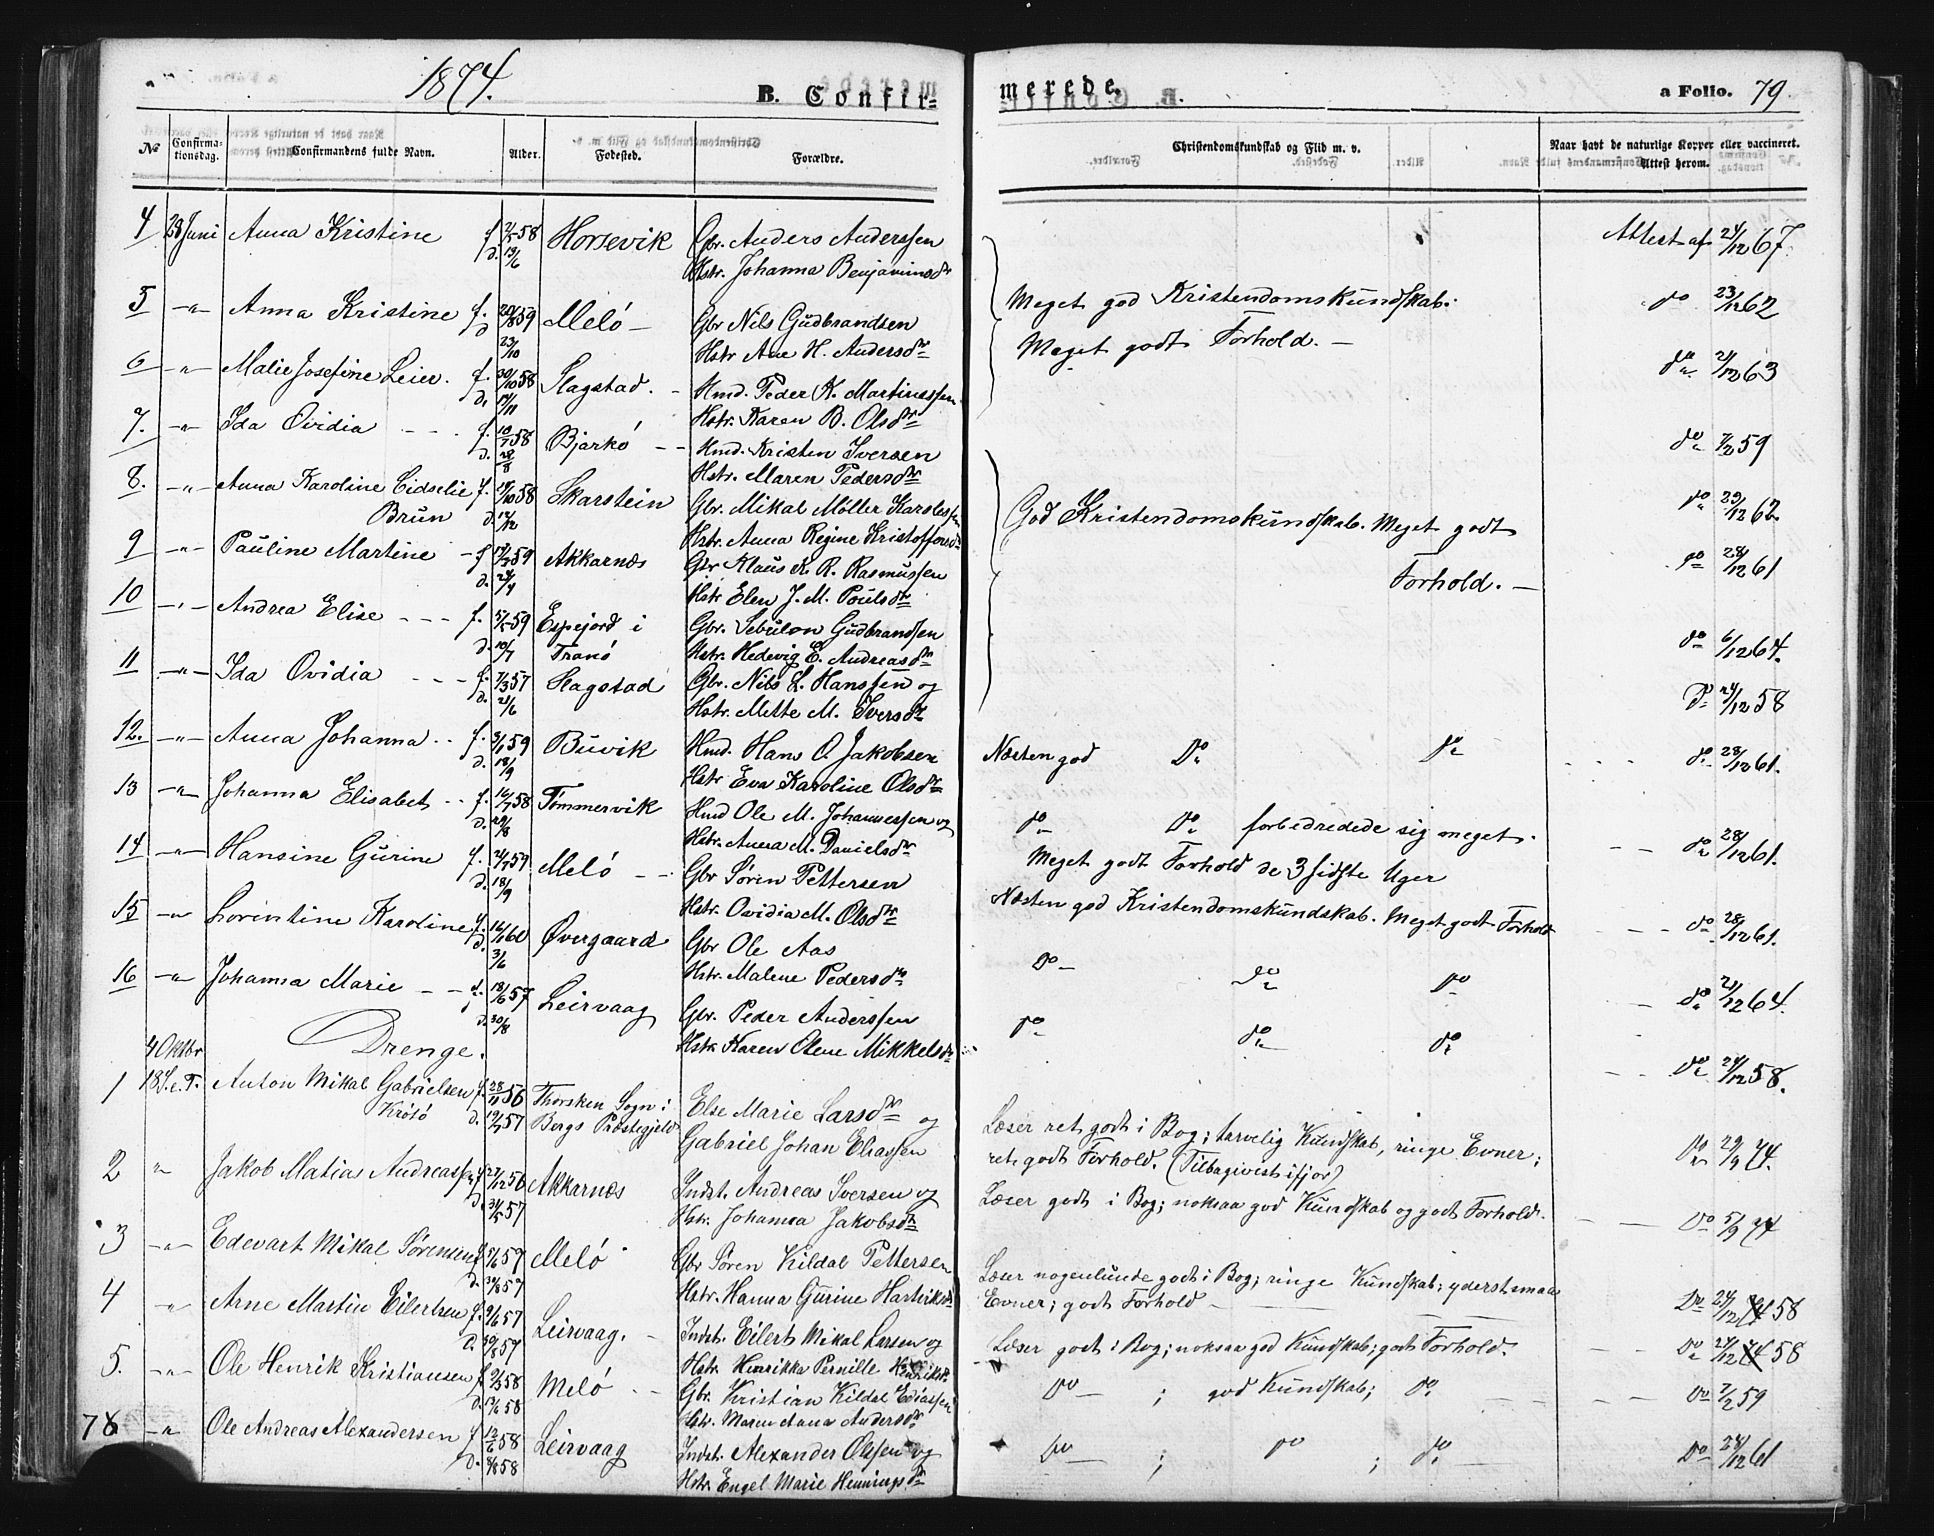 1874.
B. Confir-
merede.
a Folio. 79.
No
Confirma-
tionsdag.
Confirmandens fulde Navn.
Alder.
Fødested.
Forældre.
Christendomskundskab og Flid m. v.
Naar havt de naturlige Kopper eller vaccineret.
Attest herom.
4 28 Juni Anna Kristine f. 2/5 58 Horsevik Gbr. Anders Anderssen Attest af 21/12 67.
d. 13/6 Hstr. Johanna Benjaminsdr
5 -"- Anna Kristine f. 20/8 59 Melö Gbr Nils Gudbrandsen Meget god Kristendomskundskab. do 23/12 62
d. 23/10 Hstr Ane H. Andersdr Meget godt Forhold.
6 -"- Malie Josefine Leier. f. 30/10 58 Slagstad. Hmd. Peder K. Martinussen do 21/12 63
d. Hstr. Karen B. Olsdr
7. -"- Ida Ovidia f. 10/7 58 Bjarkö Hmd. Kristen Iversen do 7/2 59
d. 28/8 Hstr. Maren Pedersdr
8. -"- Anna Karoline Cidselie f. 58 Skarstein Gbr. Mikal Möller Karolessen God Kristendomskundskab. Meget godt do 29/12 62.
Brun d. 12/12 Hstr. Anna Regine Kristoffersdr
9 -"- Pauline Martine f. 59 Akkarnæs Gbr Klaus K. R. Rasmussen Forhold. do 28/12 61
d. 24/4 Hstr Elen J. M. Poulsdr
10 -"- Andrea Elise f. 59 Espejord i Gbr. Sebulon Gudbrandsen do 6/12 64.
d. 10/7 Tranö Hstr. Hedevig E. Andreasdr
11 -"- Ida Ovidia f. 7/3 57 Slagstad Gbr. Nils L. Hanssen og do 24/12 58
d. 21/6 Hstr. Mette M. Iversdr
12. -"- Anna Johanna f. 3/1 59 Buvik Hmd. Hans O. Jakobsen Næsten god Do do do 28/12 61.
d. 18/9 Hstr Eva Karoline Olsdr
13 -"- Johanna Elisabet f. 16/7 58 Tömmervik Hmd Ole M. Johannessen og do Do forbedredede sig meget. do 28/12 61.
d. 29/8 Hstr. Anna M. Danielsdr Meget godt Forhold de 3 sidste Uger
14 -"- Hansine Gurine f. 59 Melö Gbr Søren Pettersen Næsten god Kristendomskundskab. Meget godt Forhold do 28/12 61.
d. 18/9 Hstr. Ovidia M. Olsdr
15 -"- Lorintine Karoline f. 16/1 60 Øvergaard Gbr Ole Aas Do do do do 21/12 64.
d. 3/6 Hstr. Malene Pedersdr
16 -"- Johanna Marie f. 18/6 57 Leirvaag Gbr. Peder Anderssen do do do do 24/12 58.
d. 30/8 Hstr Karen Olene Mikkelsdr
Drenge.
4 Oktbr
18 S. e. T.
1 Anton Mikal Gabrielsen f. 28/11 56 Thorsken Sogn i Else Marie Larsdr og Læser ret godt i Bog; tarvelig Kundskab, ringe Evner; Do 29/9 74.
Krösö d. 19/7 57 Bergs Præstegjeld Gabriel Johan Eliassen ret godt Forhold. (Tilbagevist ifjor)
2 " Jakob Matias Andreassen f. 27/12 56 Akkarnæs Indst. Andreas Iversen og Læser godt i Bog; noksaa god Kundskab og godt Forhold. Do 5/9 74
d. 31/5 57 Hstr. Johanna Jakobsdr
3 -"- Edevart Mikal Sørensen f. 57 Melö Gbr Søren Kildal Pettersen Læser nogenlunde godt i Bog; ringe Kundskab; yderst smaa Do 24/12 58
d. 57 Hstr. Hanna Gurine Hartviksdr Evner; godt Forhold
4 " Arne Martin Eilertsen f. 9/6 57 Leirvaag. Indst. Eilert Mikal Larsen og Læser godt i Bog; noksaa god Kundskab; godt Forhold. Do 24/12 58
d. 30/8 57 Hstr. Henrikka Pernille Henriksdr
5. -"- Ole Henrik Kristiansen f. 9/3 58 Melö Gbr. Kristian Kildal Ediassen Do ; god Kundskab; do Do 7/2 59
d. 58 Hstr. Maren Anna Andersdr
6 -"- Ole Andreas Alexandersen f. 12/6 58 Leirvaag Indst. Alexander Olesen og Do ; do ; do Do 28/12 61
d. 8/8 58 Hstr. Engel Marie Henningsdr
78